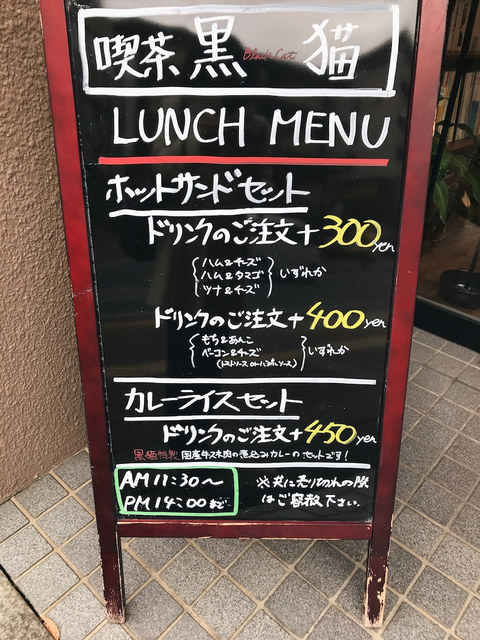 喫茶 黒 Black Cat 猫
LUNCH MENU
ホットサンドセット
ドリンクのご注文+300yen
ハム&チーズ
ハム&タマゴ
ツナ&チーズ
いずれか
ドリンクのご注文+400yen
もち&あんこ
ベーコン&チーズ
(トマトソース or バジルソース)
いずれか
カレーライスセット
ドリンクのご注文+450yen
黒猫特製 国産牛スネ肉の煮込みカレーのセットです!
AM11:30~
PM14:00まで
※共に売り切れの際
はご容赦下さい.